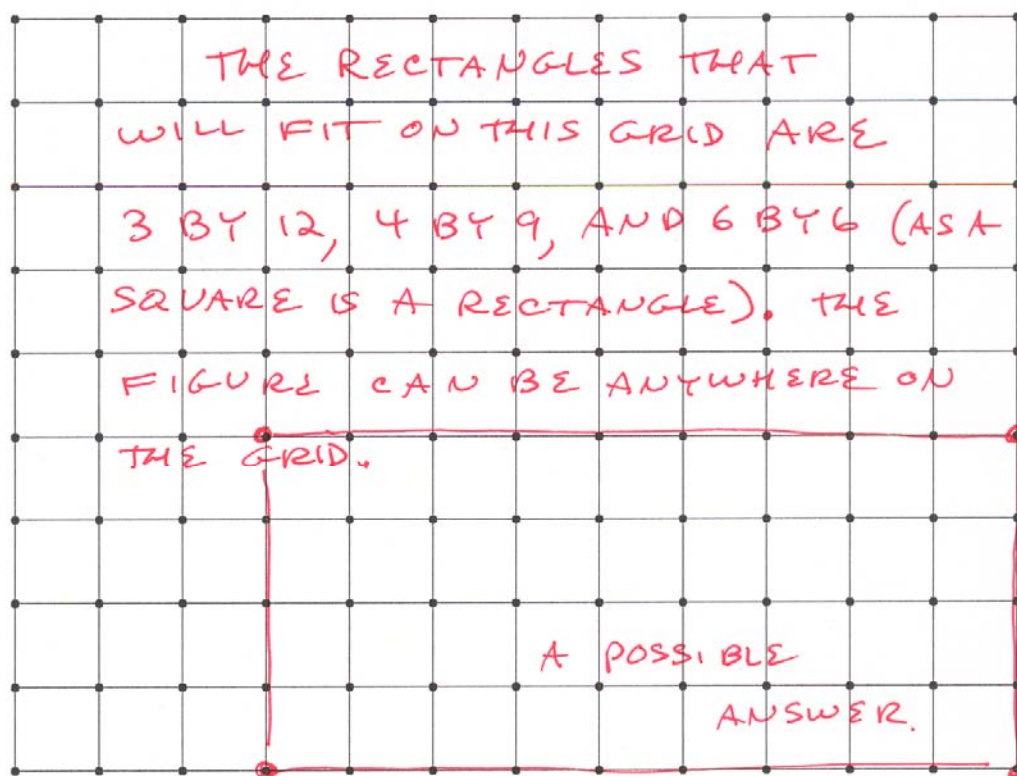 THE RECTANGLES THAT
WILL FIT ON THIS GRID ARE
3 BY 12, 4 BY 9, AND 6 BY 6 (AS A
SQUARE IS A RECTANGLE). THE
FIGURE CAN BE ANYWHERE ON
THE GRID.
A POSSIBLE
ANSWER.